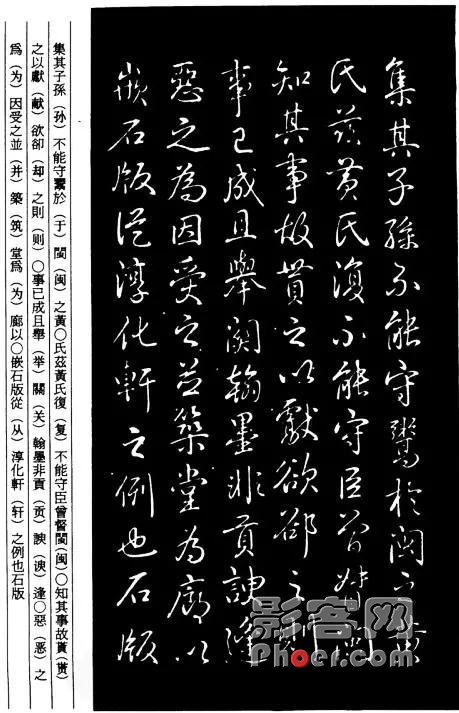 集其子孫不能守鬻於閩之黃
氏茲黃氏復不能守臣曾督閩
知其事故貰之以獻欲卻之則
事已成且舉關翰墨非貢諛逢
惡之為因受之並築堂為廊以
嵌石版從淳化軒之例也石版
集其子孫（孙）不能守鬻於（于）閩（闽）之黃○氏茲黃氏復（复）不能守臣曾督閩（闽）○知其事故貰（贳）
之以獻（献）欲卻（却）之則（则）○事已成且舉（举）關（关）翰墨非貢（贡）諛（谀）逢○惡（恶）之
爲（为）因受之並（并）築（筑）堂爲（为）廊以○嵌石版從（从）淳化軒（轩）之例也石版
影客网
Phoer.com